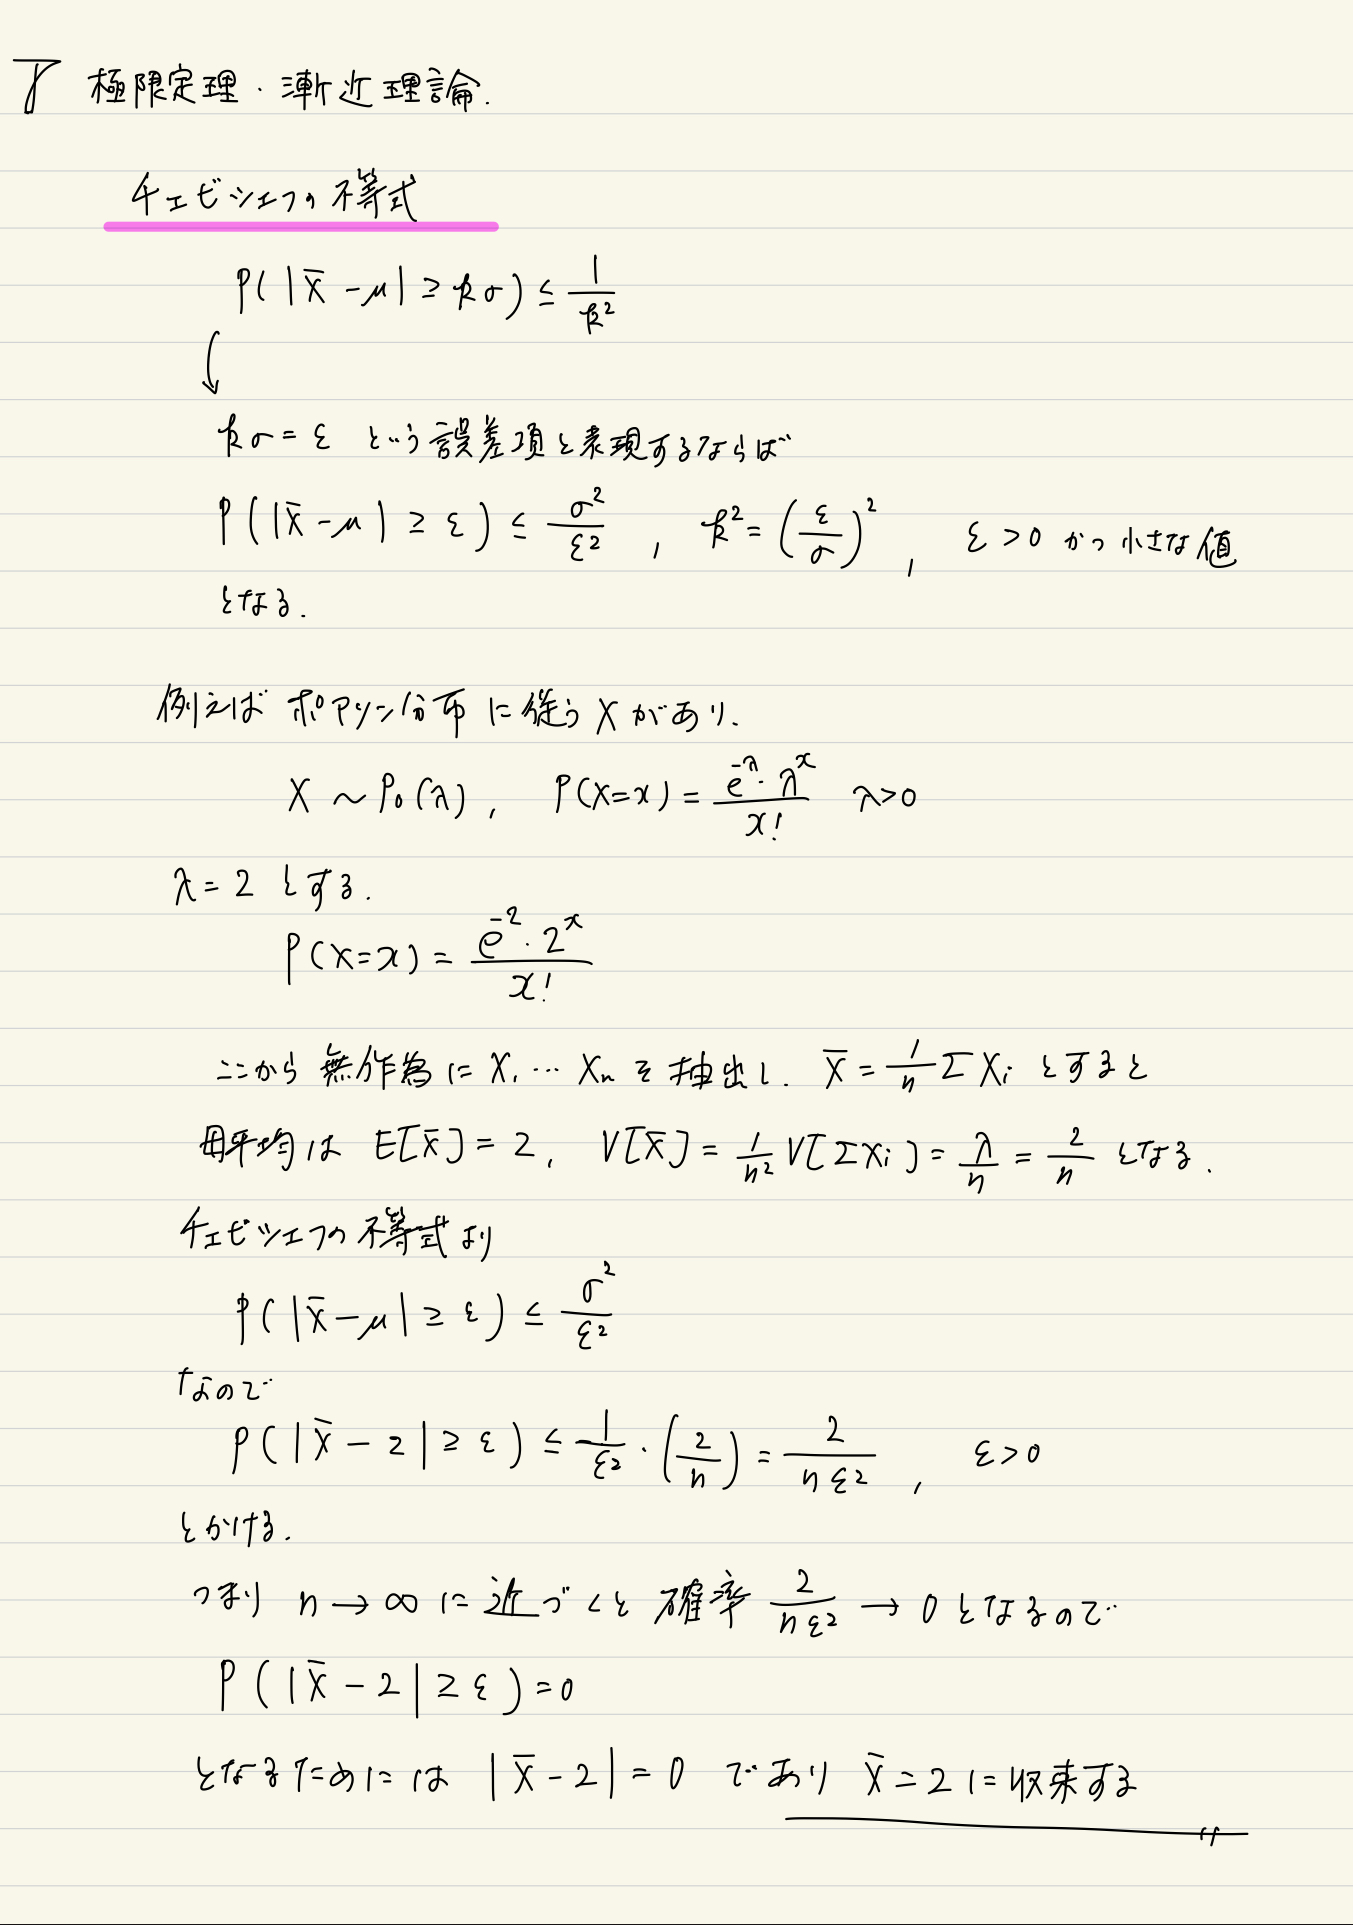 〒 極限定理・漸近理論.
チェビシェフの不等式
P( |X̄ - μ| ≥ kσ) ≤ 1/k²
kσ = ε という誤差項と表現するならば
P( |X̄ - μ| ≥ ε ) ≤ σ²/ε² , k² = (ε/σ)² , ε > 0 かつ小さな値
となる.
例えばポアソン分布に従うXがあり.
X ~ Po(λ) , P(X=x) = e^{-λ}・λ^x / x! λ>0
λ = 2 とする.
P(X=x) = e^{-2}・2^x / x!
ここから無作為に X₁ … Xn を抽出し. X̄ = 1/n Σ Xi とすると
母平均は E[X̄] = 2 , V[X̄] = 1/n² V[ΣXi] = λ/n = 2/n となる.
チェビシェフの不等式より
P( |X̄ - μ| ≥ ε ) ≤ σ²/ε²
なので
P( |X̄ - 2| ≥ ε ) ≤ 1/ε² ・(2/n) = 2/nε² , ε > 0
とかける.
つまり n → ∞ に近づくと確率 2/nε² → 0 となるので
P ( |X̄ - 2| ≥ ε ) = 0
となるためには |X̄ - 2| = 0 であり X̄ = 2 に収束する